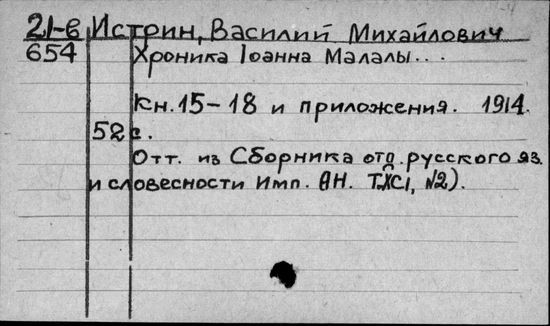 21-в Истрин, Василий Михайлович
654 Хроника Iоанна Малалы...
Кн. 15-18 и приложения. 1914.
52 с.
Отт. из Сборника отд. русского яз.
и словесности Имп. АН. Т.XCI, №2).